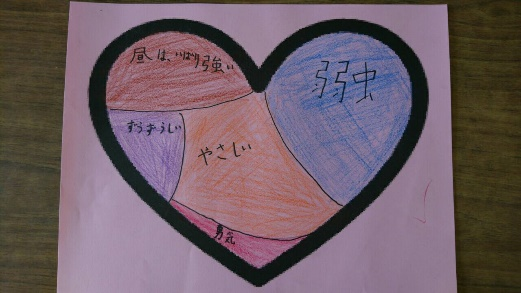 昼は、いばり強い
弱虫
ずうずうしい
やさしい
勇気